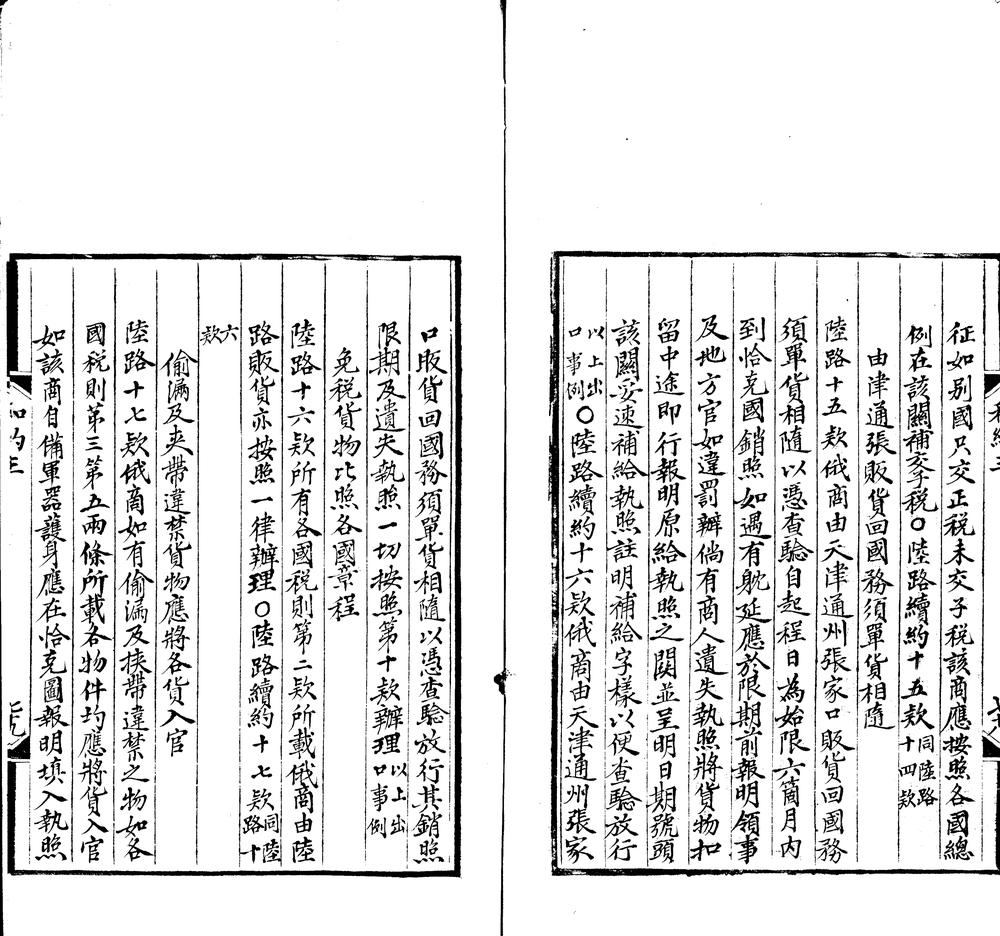 征如别國只交正税未交子税該商應按照各國總
例在該關補交子税○陸路續約十五款同陸路十四款
由津通張販貨回國務須單貨相隨
陸路十五款俄商由天津通州張家口販貨回國務
須單貨相隨以憑查驗自起程日為始限六箇月内
到恰克圖銷照如遇有躭延應於限期前報明領事
及地方官如違罰辦倘有商人遺失執照將貨物扣
留中途即行報明原給執照之關並呈明日期號頭
該關妥速補給執照註明補給字樣以便查驗放行
以上出口事例○陸路續約十六款俄商由天津通州張家
七八
口販貨回國務須單貨相隨以憑查驗放行其銷照
限期及遺失執照一切按照第十款辦理以上出口事例
免税貨物比照各國章程
陸路十六款所有各國税則第二款所載俄商由陸
路販貨亦按照一律辦理○陸路續約十七款同陸路十
六款
偷漏及夾帶違禁貨物應將各貨入官
陸路十七款俄商如有偷漏及挾帶違禁之物如各
國税則第三第五兩條所載各物件均應將貨入官
如該商自備軍器護身應在恰克圖報明填入執照
和約三
七九